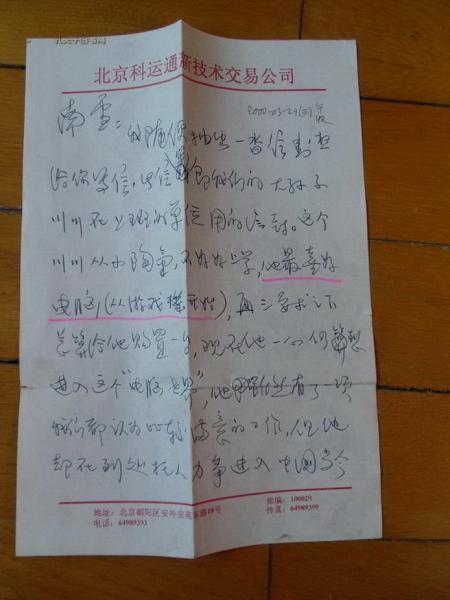 北京科运通新技术交易公司
2000-03-29(三)午夜
南雪：
我随便抽出一沓信封想
给你写信，此信封即我们的大孙子
川川在上班的单位用的信封。这个
川川从小陶气，不好好上学，他最喜好
电脑，(从游戏机开始)，再三争求之下
总算给他购置一台，现在他一心何
进入这个"电脑世界"，他虽然有了一项
我们都认为比较满意的工作，但他
却在到处托人力争进入中国当今
地址：北京朝阳区安外安苑东路18号
电话：64989393
邮编：100029
传真：64989399